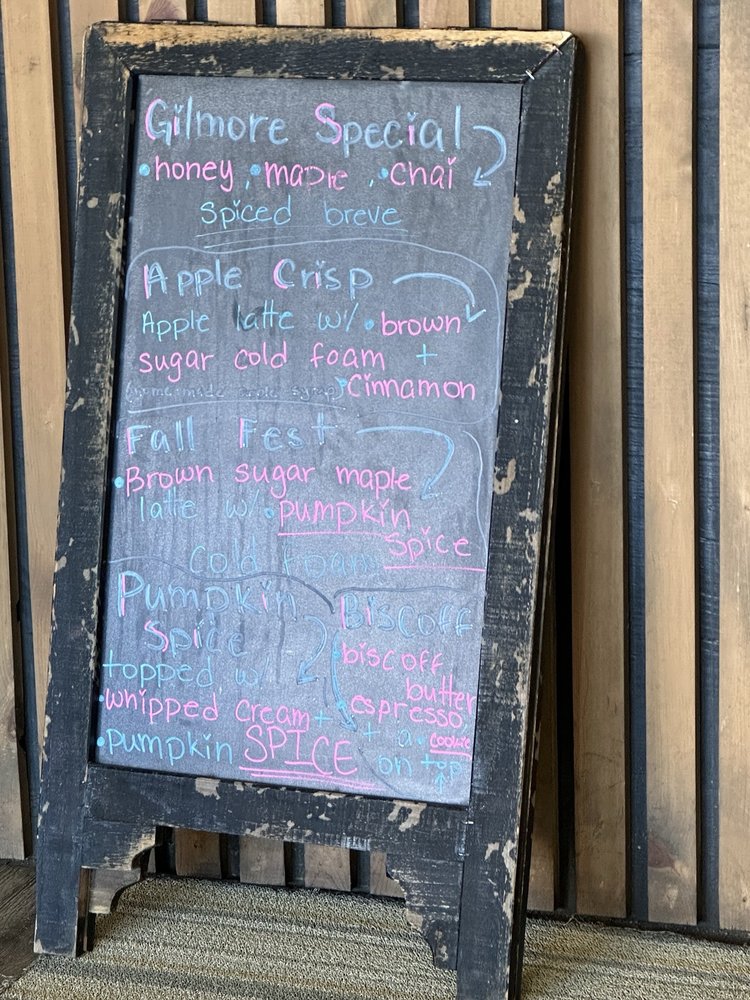 Gilmore Special
•honey, •maple, •chai
spiced breve
Apple Crisp
Apple latte w/ •brown
sugar cold foam +
(homemade apple syrup) •Cinnamon
Fall Fest
•Brown sugar maple
latte w/ •pumpkin
spice
cold foam
Pumpkin
Spice
topped w/
•whipped cream +
•pumpkin SPICE
Biscoff
biscoff
butter
espresso
+ a •cookie
on top